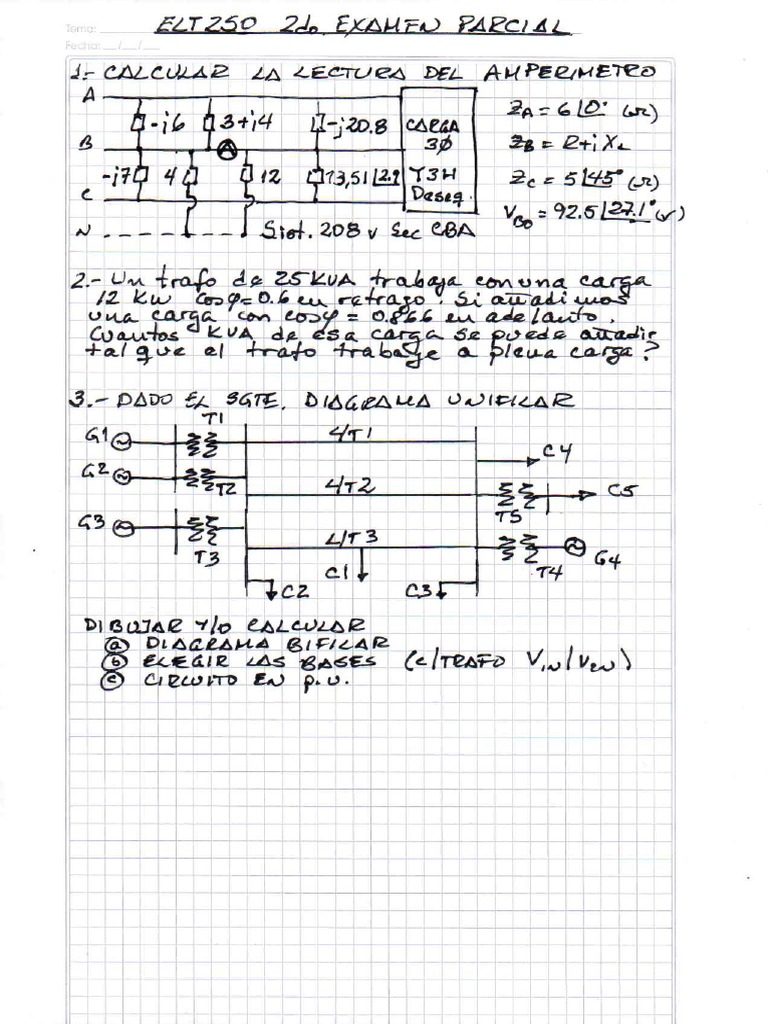 Tema:
ELT250 2do. EXAMEN PARCIAL
Fecha: __/__/__
1.- CALCULAR LA LECTURA DEL AMPERIMETRO
A
-j6 3+j4 -j20.8 CARGA
3Ø
B
A
-j7 4 12 13,51∠2.9 Y3H
Deseq.
C
N Sist. 208 v Sec CBA
ZA = 6∠0° (Ω)
ZB = R+jXL
ZC = 5∠45° (Ω)
VBO = 92.5∠27.1° (V)
2.- Un trafo de 25 KVA trabaja con una carga
12 KW cosφ=0.6 en retraso. Si añadimos
una carga con cosφ = 0.866 en adelanto.
Cuantos KVA de esa carga se puede añadir
tal que el trafo trabaje a plena carga?
3.- DADO EL SGTE. DIAGRAMA UNIFILAR
T1
G1 L/T1
C4
G2 T2 L/T2 C5
T5
G3 L/T3 G4
T3 C1 T4
C2 C3
DIBUJAR Y/O CALCULAR
a DIAGRAMA BIFILAR
b ELEGIR LAS BASES (C/TRAFO V1N/V2N)
c CIRCUITO EN p.u.